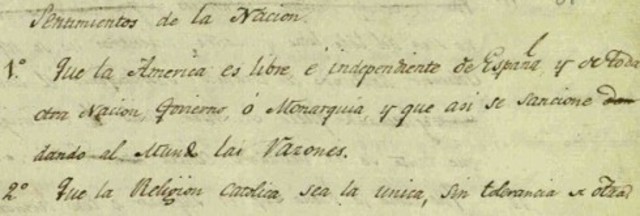 Sentimientos de la Nacion.
1.º Que la America es libre, é independiente de España, y de toda
otra Nacion, Govierno, ó Monarquia, y que asi se sancione
dando al Mundo las Razones.
2.º Que la Religion Catolica, sea la unica, sin tolerancia de otra